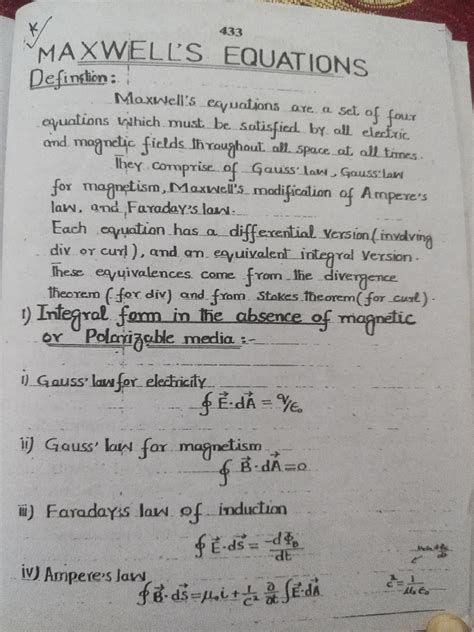 K
433
MAXWELL'S EQUATIONS
Definition:
Maxwell's equations are a set of four
equations which must be satisfied by all electric
and magnetic fields throughout all space at all times.
They comprise of Gauss' law, Gauss' law
for magnetism, Maxwell's modification of Ampere's
law, and Faraday's law.
Each equation has a differential version (involving
div or curl), and an equivalent integral version.
These equivalences come from the divergence
theorem (for div) and from Stokes theorem (for curl).
1) Integral form in the absence of magnetic
or Polarizable media :-
i) Gauss' law for electricity
∮ E⃗·dA⃗ = q/ε₀
ii) Gauss' law for magnetism
∮ B⃗·dA⃗ = 0
iii) Faraday's law of induction
∮ E⃗·dS⃗ = -dΦ_B/dt
iv) Ampere's law
∮ B⃗·dS⃗ = μ₀i + 1/c² ∂/∂t ∫E⃗·dA⃗
c² = 1/μ₀ε₀